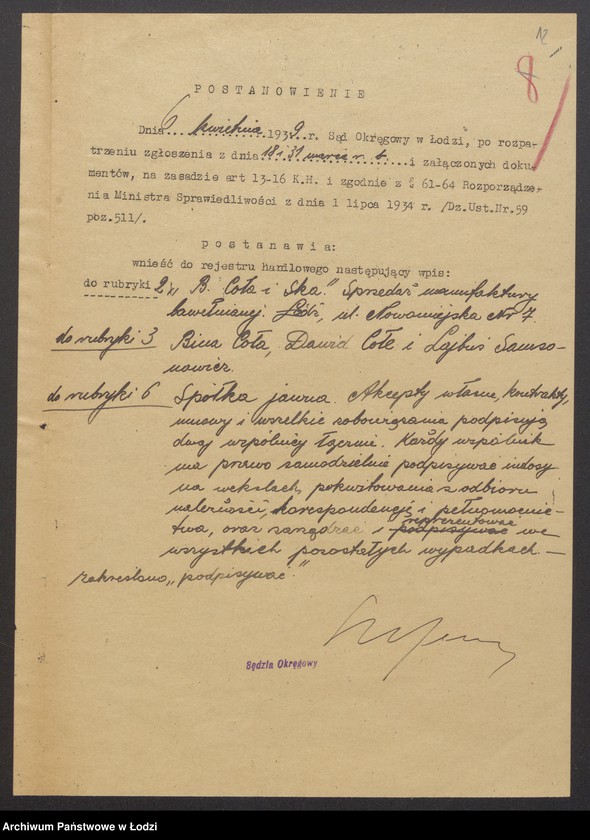 12
8
POSTANOWIENIE
Dnia 6 kwietnia 1939 r. Sąd Okręgowy w Łodzi, po rozpa-
trzeniu zgłoszenia z dnia 18 i 31 marca r. b. i załączonych doku-
mentów, na zasadzie art 13-16 K.H. i zgodnie z § 61-64 Rozporządze-
nia Ministra Sprawiedliwości z dnia 1 lipca 1934 r. /Dz.Ust.Nr.59
poz.511/.
postanawia:
wnieść do rejestru handlowego następujący wpis:
do rubryki 2 „B. Coła i Ska." Sprzedaż manufaktury
bawełnianej. Łódź, ul. Nowomiejska Nr 7.
do rubryki 3 Bina Coła, Dawid Coła i Lajbuś Samso-
nowicz.
do rubryki 6 Spółka jawna. Akcepty własne, kontrakty,
umowy i wszelkie zobowiązania podpisują
dwaj wspólnicy łącznie. Każdy wspólnik
ma prawo samodzielnie podpisywać indosy
na wekslach, pokwitowania z odbioru
należności, korespondencję i pełnomocnic-
twa, oraz zarządzać i podpisywać reprezentować we
wszystkich pozostałych wypadkach.—
zakreślono „podpisywać."
Sędzia Okręgowy
Archiwum Państwowe w Łodzi